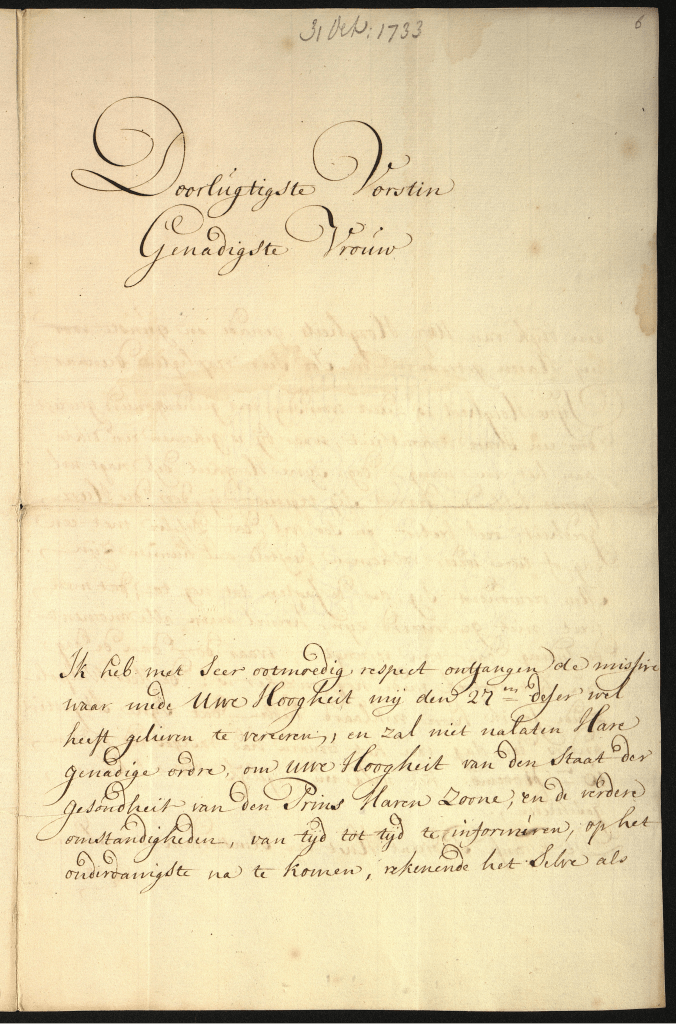 31 Oct: 1733
6
Doorlugtigste Vorstin
Genadigste Vrouw
Ik heb met seer ootmoedig respect ontfangen de missive
waar mede Uwe Hoogheit mij den 27en deser wel
heeft gelieven te vereeren, en zal niet nalaten Hare
genadige ordre, om uwe Hoogheit van den staat der
gesondheit van den Prins Haren Zoone, en de verdere
omstandigheden, van tijd tot tijd te informéren, op het
onderdanigste na te komen, rekenende het selve als